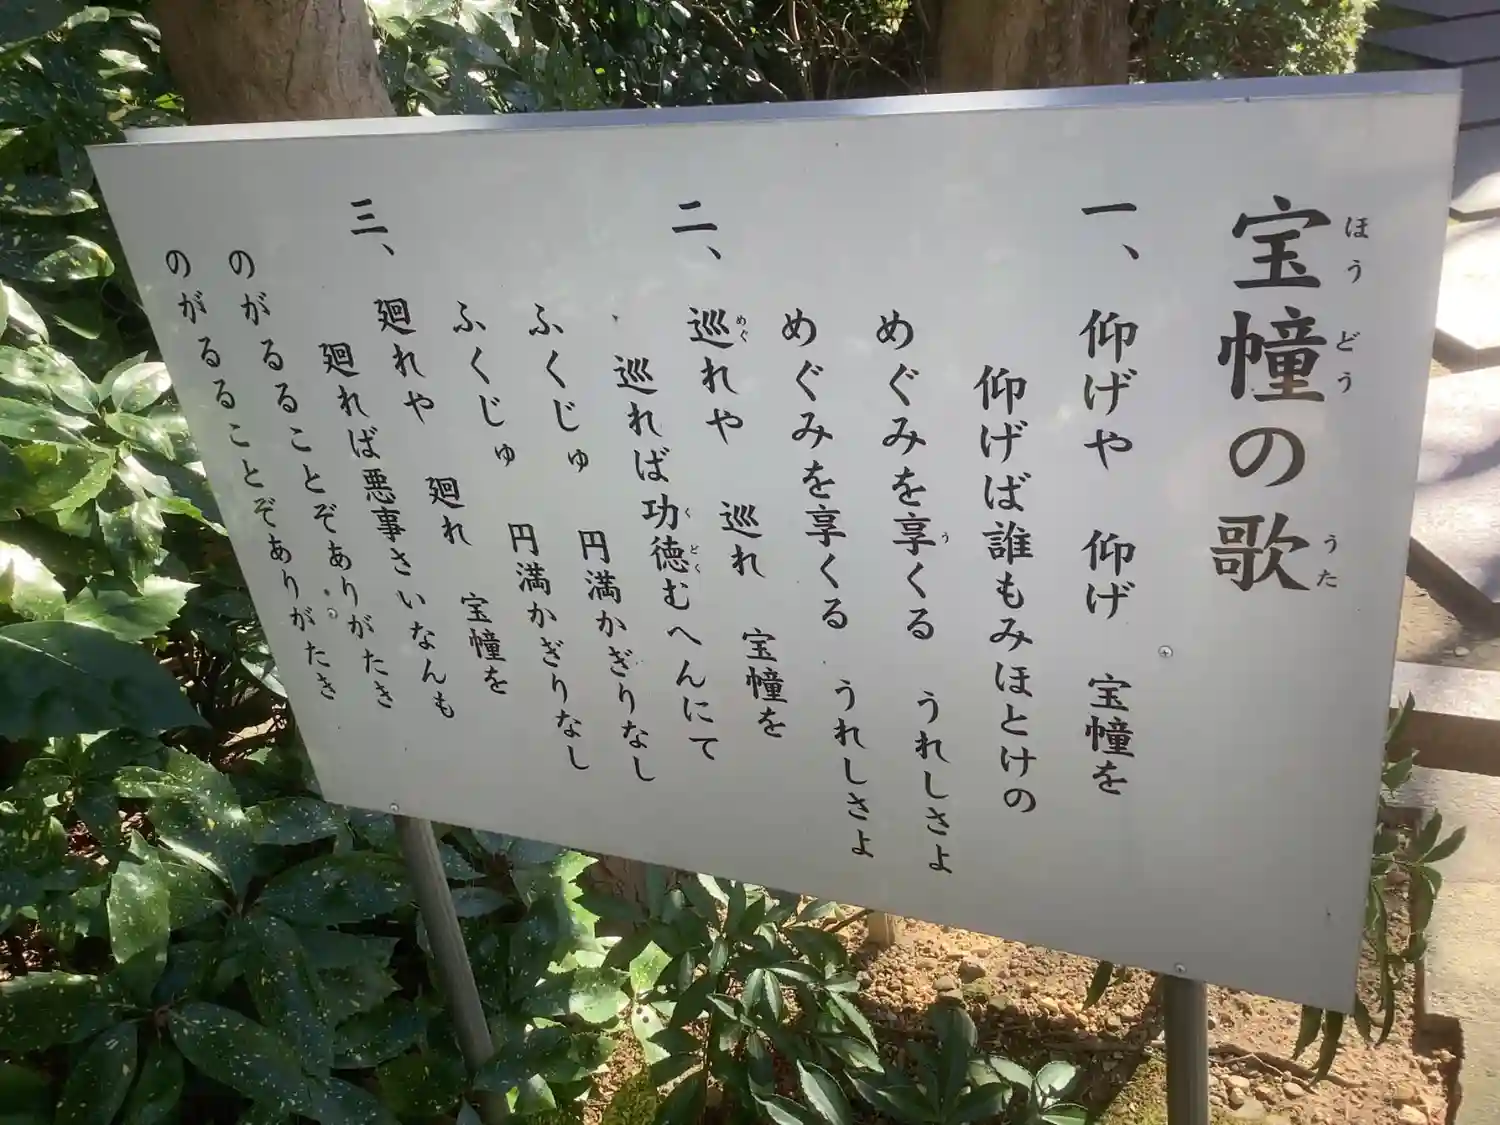 宝幢の歌
ほうどう
うた
一、 仰げや 仰げ 宝幢を
仰げば誰もみほとけの
めぐみを享くる うれしさよ
う
めぐみを享くる うれしさよ
二、 巡れや 巡れ 宝幢を
めぐ
巡れば功徳むへんにて
くどく
ふくじゅ 円満かぎりなし
ふくじゅ 円満かぎりなし
三、 廻れや 廻れ 宝幢を
廻れば悪事さいなんも
のがるることぞありがたき
のがるることぞありがたき